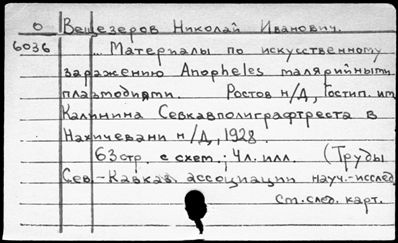 О Вещезеров Николай Иванович.
6036 ... Материалы по искусственному
заражению Anopheles малярийными
плазмодиями. Ростов н/Д, Гостип. им.
Калинина Севкавполиграфтреста в
Нахичевани н/Д, 1928.
63 стр. с схем.; 4 л. илл. (Труды
Сев.-Кавказ. ассоциации науч.-исслед.
См. след. карт.